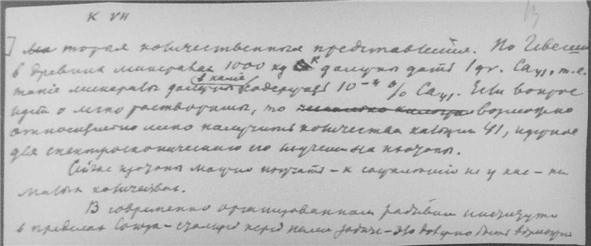 К VII
] которая количественных представления. По Чвеши
в древних минералах 1000 kg K должны дать 1 gr. Ca41, т.е.
такие минералы должны в калие содержать 10⁻⁴ % Ca41. Если вопрос
идет о легко растворимых, то возможно
относительно легко получить количества кальция 41, нужное
для спектроскопического его изучения на изотопы.
Сейчас изотопы можно изучать – к сожалению не у нас – на
малых количествах.
В современно организованном радиевом институте
в пределах Союза – стоящая перед нами задача – это должно быть возможно